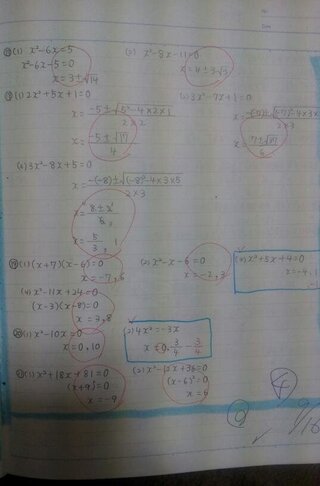 (1) x²-6x=5
x²-6x-5=0
x=3±√14
(2) x²-8x-11=0
x=4±3√3
(1) 2x²+5x+1=0
x= -5±√5²-4×2×1 / 2×2
x= -5±√17 / 4
3x²-7x+1=0
x= -(-7)±√(-7)²-4×3×
2×3
x= 7±√37
3x²-8x+5=0
x= -(-8)±√(-8)²-4×3×5 / 2×3
x= 8±
x= 5/3, 1
⑲ (1) (x+7)(x-6)=0
x=-7, 6
(2) x²-x-6=0
x=-2, 3
x²+5x+4=0
x=-4, -1
(4) x²-11x+24=0
(x-3)(x-8)=0
x=3, 8
⑳ (1) x²-10x=0
x=0, 10
(2) 4x²=-3x
x=0, -3/4
(1) x²+18x+81=0
(x+9)=0
x=-9
(2) x²-12x+36=0
(x-6)²=0
x=6